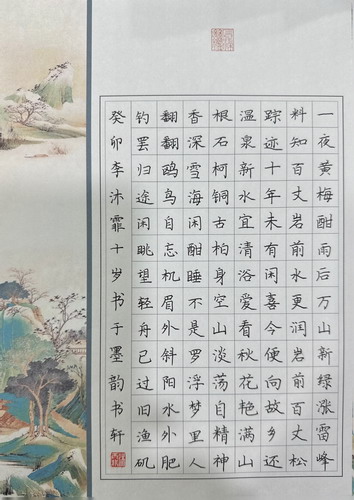 一夜黄梅酣雨后万山新绿涨雷峰
料知百丈岩前水更润岩前百丈松
踪迹十年未有闲喜今便向故乡还
温泉新水宜清浴爱看秋花艳满山
根石柯铜古柏身空山淡荡自精神
香深雪海闲酣睡不是罗浮梦里人
翻翻鸥鸟自忘机眉外斜阳水外肥
钓罢归途闲眺望轻舟已过旧渔矶
癸卯李沐霏十岁书于墨韵书轩